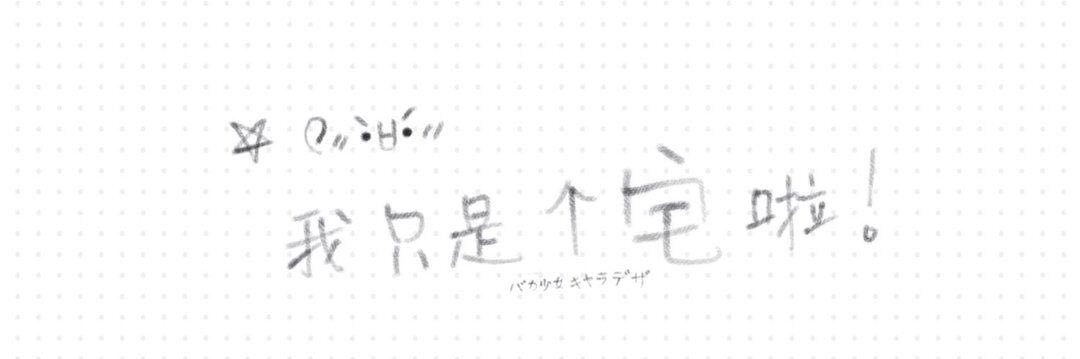 我只是个宅啦!
バカ少女キャラデザ